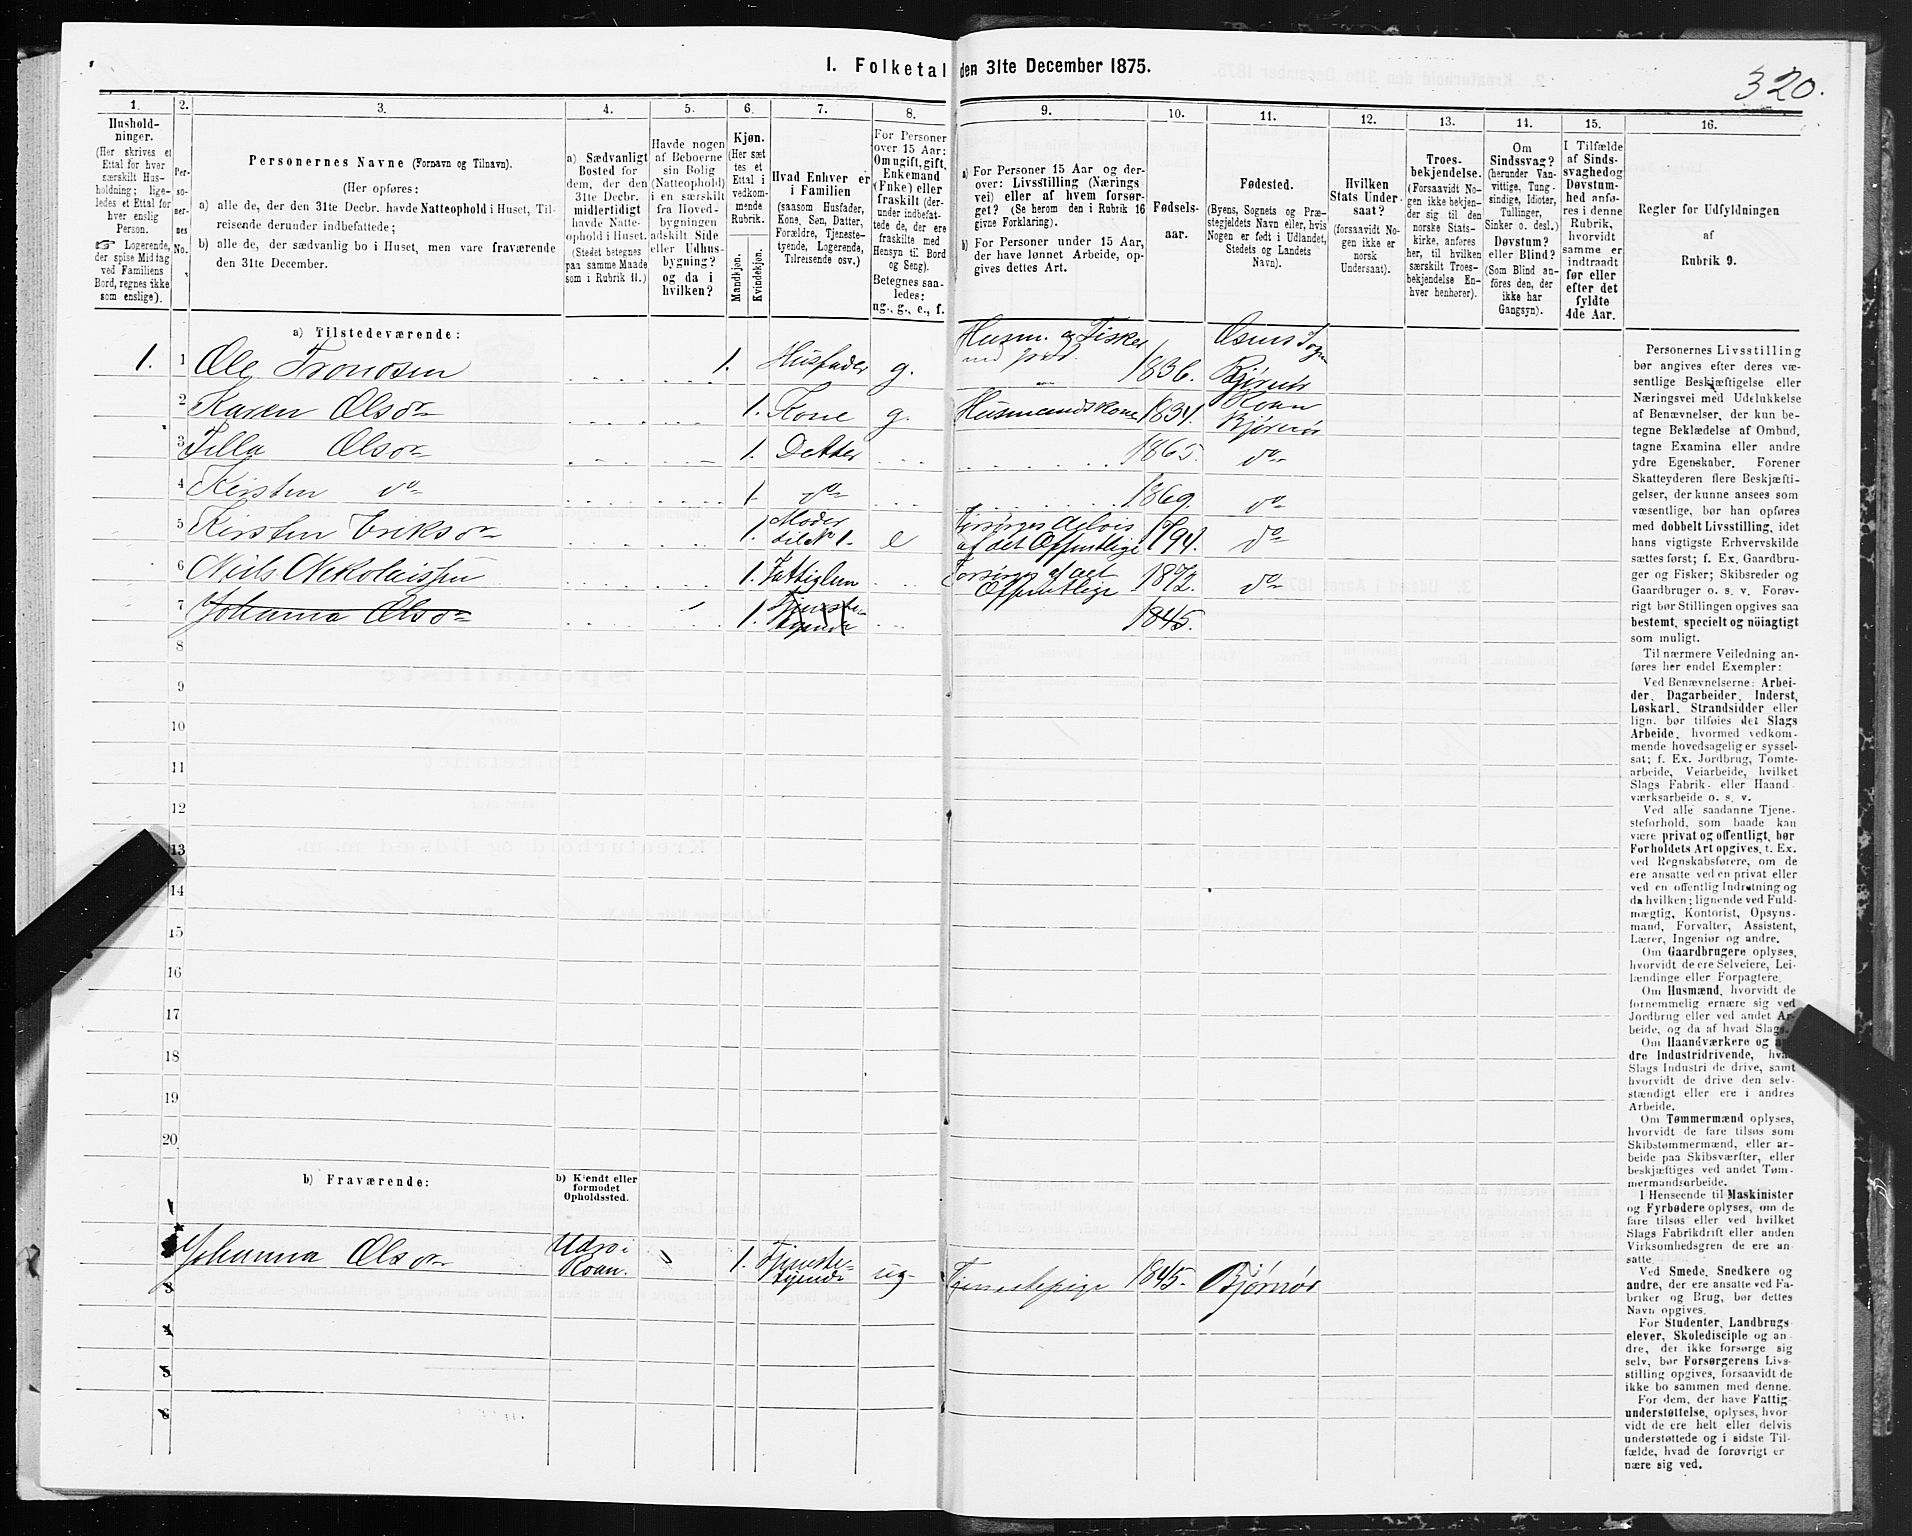 1. Folketal den 31te December 1875.
320.
1. 2. 3. 4. 5. 6. 7. 8. 9. 10. 11. 12. 13. 14. 15. 16.
Hushold-
ninger.
(Her skrives et
Ettal for hver
særskilt Hus-
holdning; lige-
ledes et Ettal for
hver enslig
Person.
☞ Logerende,
der spise Middag
ved Familiens
Bord, regnes ikke
som enslige).
Per-
so-
ner-
nes
No.
Personernes Navne (Fornavn og Tilnavn).
(Her opføres:
a) alle de, der den 31te Decbr. havde Natteophold i Huset, Til-
reisende derunder indbefattede;
b) alle de, der sædvanlig bo i Huset, men vare fraværende
den 31te December.
a) Sædvanligt
Bosted for
dem, der den
31te Decbr.
midlertidigt
havde Natte-
ophold i Huset.
(Stedet betegnes
paa samme Maade
som i Rubrik 11.)
Havde nogen
af Beboerne
sin Bolig
(Natteophold)
i en særskilt
fra Hoved-
bygningen
adskilt Side
eller Udhus-
bygning?
og da i
hvilken?
Kjøn.
(Her sæt
tes et
Ettal i
vedkom-
mende
Rubrik.
Mandkjøn.
Kvindekjøn.
Hvad Enhver er
i Familien
(saasom Husfader,
Kone, Søn, Datter,
Forældre, Tjeneste-
tyende, Logerende,
Tilreisende osv.)
For Personer
over 15 Aar:
Om ugift, gift,
Enkemand
(Enke) eller
fraskilt (der-
under indbefat-
tede de, der ere
fraskilte med
Hensyn til Bord
og Seng).
Betegnes saa-
ledes:
ug., g., e., f.
a) For Personer 15 Aar og der-
over: Livsstilling (Nærings
vei) eller af hvem forsør-
get? (Se herom den i Rubrik 16
givne Forklaring).
b) For Personer under 15 Aar,
der have lønnet Arbeide, op-
gives dettes Art.
Fødsels-
aar.
Fødested.
(Byens, Sognets og Præ-
stegjeldets Navn eller, hvis
Nogen er født i Udlandet,
Stedets og Landets
Navn).
Hvilken
Stats Under-
saat?
(forsaavidt No-
gen ikke er
norsk
Undersaat).
Troes-
bekjendelse.
(Forsaavidt No-
gen ikke bekjen-
der sig til den
norske Stats-
kirke, anføres
her, til hvilken
særskilt Troes-
bekjendelse En-
hver henhører).
Om
Sindssvag?
(herunder Van-
vittige, Tung-
sindige, Idioter,
Tullinger,
Sinker o. desl.)
Døvstum?
eller Blind?
(Som Blind an-
føres den, der
ikke har
Gangsyn).
I Tilfælde
af Sinds-
svaghed og
Døvstum-
hed anfø-
res i denne
Rubrik,
hvorvidt
samme er
indtraadt
før eller
efter det
fyldte
4de Aar.
Regler for Udfyldningen
af
Rubrik 9.
a) Tilstedeværende:
1. 1 Ole Trondsen 1. Husfader g. Husm. og Fisker med Jord. 1836. Osens Sogn Bjørnør
2 Karen Olsdr 1. Kone g. Husmandskone 1834. Roan Bjørnør
3 Jilla Olsdr 1. Datter 1865. do
4 Kirsten do 1 do 1869. do
5 Kirsten Eriksdr 1. Moder til No 1. e Forsørges delvis af det Offentlige 1794. do
6 Niels Nikolaissen 1. Fattiglem Forsørges af det Offentlige 1872. do
7 Johanna Olsdr 1. Tjeneste-tyende 1845.
8
9
10
11
12
13
14
15
16
17
18
19
20
b) Fraværende:
b) Kjendt eller
formodet
Opholdssted.
1
Johanna Olsdr Udrø i Roan. 1. Tjeneste-tyende ug. Tjenestepige 1845. Bjørnør
3
4
5
6
Personernes Livsstilling
bør angives efter deres væ-
sentlige Beskjæftigelse eller
Næringsvei med Udelukkelse
af Benævnelser, der kun be-
tegne Beklædelse af Ombud,
tagne Examina eller andre
ydre Egenskaber. Forener
Skatteyderen flere Beskjæfti-
gelser, der kunne ansees som
væsentlige, bør han opføres
med dobbelt Livsstilling, idet
hans vigtigste Erhvervskilde
sættes først; f. Ex. Gaardbru-
ger og Fisker; Skibsreder og
Gaardbruger o. s. v. Forøv-
rigt bør Stillingen opgives saa
bestemt, specielt og nöiagtigt
som muligt.
Til nærmere Veiledning an-
føres her endel Exempler:
Ved Benævnelserne: Arbei-
der, Dagarbeider, Inderst,
Løskarl, Strandsidder eller
lign. bør tilføies det Slags
Arbeide, hvormed vedkom-
mende hovedsagelig er syssel-
sat; f. Ex. Jordbrug, Tomte-
arbeide, Veiarbeide, hvilket
Slags Fabrik- eller Haand
værksarbeide o. s. v.
Ved alle saadanne Tjene-
steforhold, som baade kan
være privat og offentligt, bør
Forholdets Art opgives, t. Ex.
ved Regnskabsførere, om de
ere ansatte ved en privat eller
ved en offentlig Indretning og
da hvilken; lignende ved Fuld-
mægtig, Kontorist, Opsyns-
mand, Forvalter, Assistent,
Lærer, Ingeniør og andre.
Om Gaardbrugere oplyses,
hvorvidt de ere Selveiere, Lei-
lændinge eller Forpagtere.
Om Husmænd, hvorvidt de
fornemmelig ernære sig ved
Jordbrug eller ved andet Ar-
beide, og da af hvad Slags.
Om Haandværkere og an-
dre Industridrivende, hvad
Slags Industri de drive, samt
hvorvidt de drive den selv-
stændigt eller ere i andres
Arbeide.
Om Tømmermænd oplyses,
hvorvidt de fare tilsøs som
Skibstømmermænd, eller ar-
beide paa Skibsværfter, eller
beskjæftiges ved andet Tøm-
mermandsarbeide.
I Henseende til Maskinister
og Fyrbødere oplyses, om de
fare tilsøs eller ved hvilket
Slags Fabrikdrift eller anden
Virksomhedsgren de ere an-
satte.
Ved Smede, Snedkere og
andre, der ere ansatte ved Fa-
briker og Brug, bør dettes
Navn opgives.
For Studenter, Landbrugs
elever, Skoledisciple og an-
dre, der ikke forsørge sig
selv, bør Forsørgerens Livs-
stilling opgives, forsaavidt de
ikke bo sammen med denne.
For dem, der have Fattig-
understøttelse, oplyses, hvor
vidt de ere helt eller delvis
understøttede og i sidste Til-
fælde, hvad de forøvrigt er
nære sig ved.